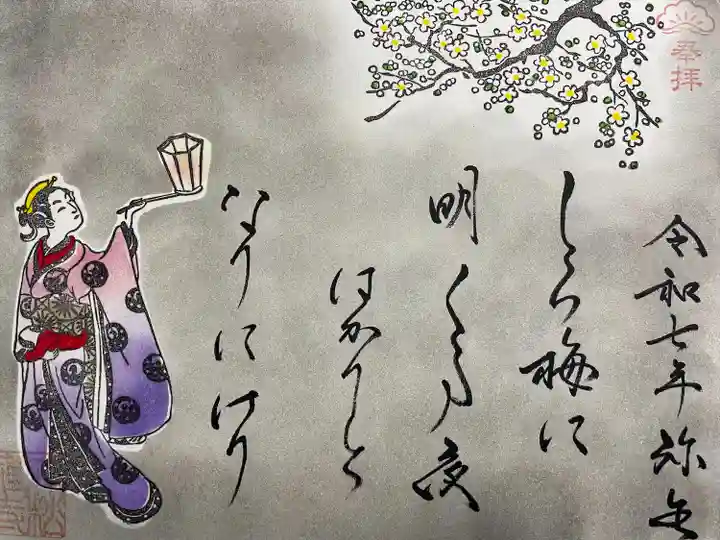 奉拝
令和七年弥生
しら梅に
明くる夜
ばかりと
なりにけり